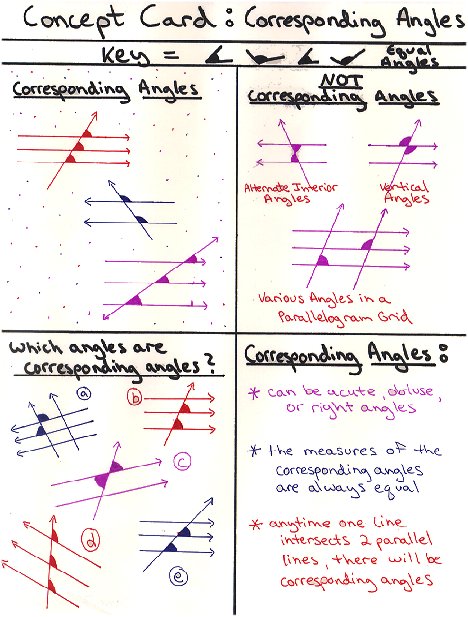 Concept Card: Corresponding Angles
Key = Equal
Angles
Corresponding Angles
NOT
Corresponding Angles
Alternate Interior
Angles
Vertical
Angles
Various Angles in a
Parallelogram Grid
Which angles are
corresponding angles?
a
b
c
d
e
Corresponding Angles:
* can be acute, obtuse,
or right angles
* the measures of the
corresponding angles
are always equal
* anytime one line
intersects 2 parallel
lines, there will be
corresponding angles